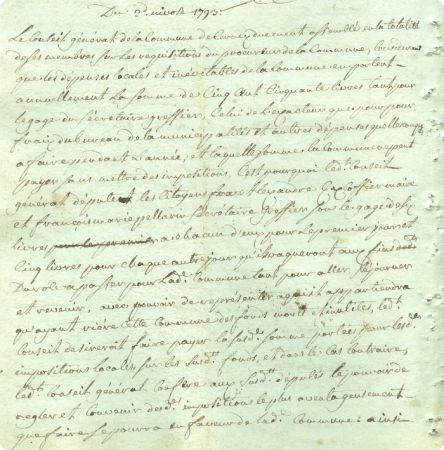 Du 2d. nivose 1793.
Le Conseil général de la Commune de assemblé en la totalité
de ses membres sur les requisitions du procureur de la Commune,
que les dépenses locales et inévitables de la Commune emportent
annuellement La somme de Cinq Cent Cinquante livres tant pour
le gage du Secrétaire greffier, Celui de que pour
frais du bureau de la municipalité et autres dépenses quelle
a faire pendant l'année, et laquelle somme la Commune ne peut
payer sans mettre des impositions. C'est pourquoi led. Conseil
général députent les Citoyens Alexandre maire
et françois marie pellarin Secrétaire Greffier sous le gage de
livres a chacun d'eux pour Le premier jour et
Cinq livres pour chaque autre jour qu'ils vaqueront aux fins
Du role a passer pour Lad. Commune tant pour aller, séjourner
et revenir, avec pouvoir de représenter a qui il appartiendra
qu'ayant vidée Cette Commune des fonds morts et inutiles, led.
Conseil desireroit faire payer la susd. somme portée pour lesd.
impositions locales sur les susd. fonds, et dans le cas contraire,
led. Conseil général Confère aux susd. députés le pouvoir de
regler et Convenir desd. impositions le plus avantageusement
que faire se pourra en faveur de lad. Commune: ainsi